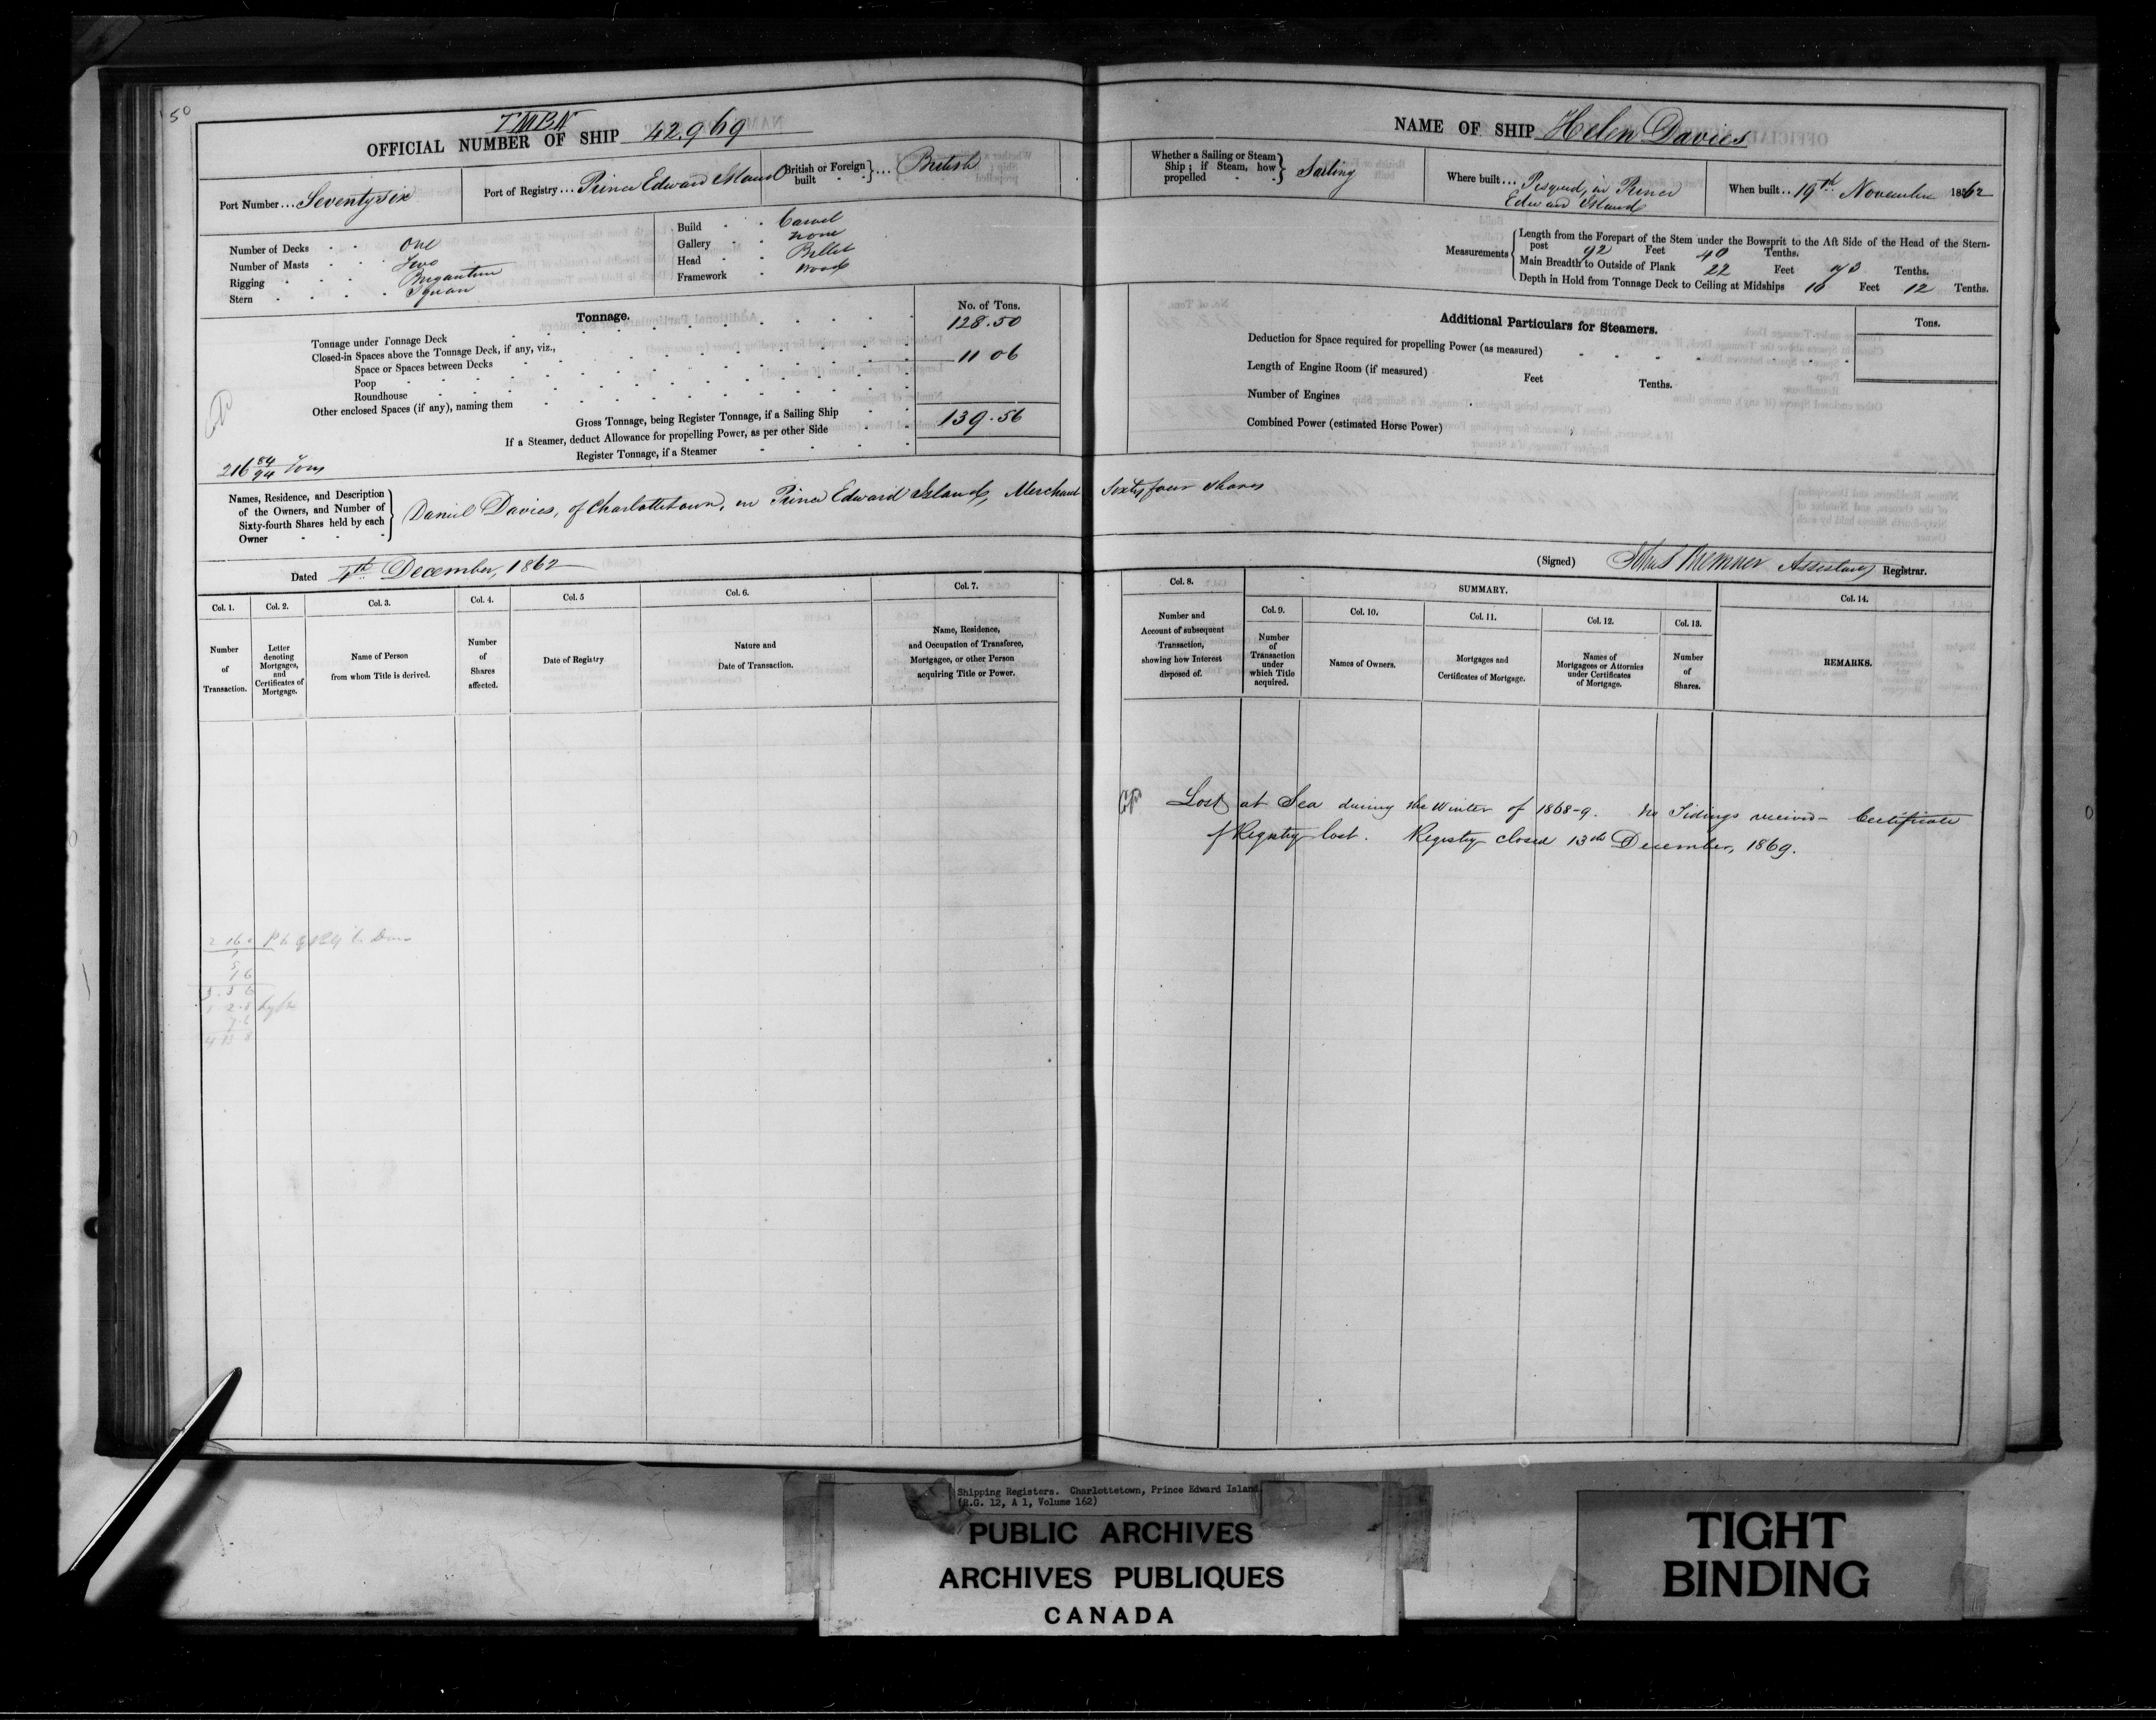 50
TMBN
OFFICIAL NUMBER OF SHIP 42.969
Port Number ... Seventy six
Port of Registry ... Prince Edward Island
British or Foreign built } ... British
Number of Decks One
Number of Masts Two
Rigging Brigantine
Stern Square
Build Carvel
Gallery none
Head Billet
Framework Wood
Tonnage.
No. of Tons.
Tonnage under Tonnage Deck 128.50
Closed-in Spaces above the Tonnage Deck, if any, viz.,
Space or Spaces between Decks 11 06
Poop
Roundhouse
Other enclosed Spaces (if any), naming them
Gross Tonnage, being Register Tonnage, if a Sailing Ship 139.56
If a Steamer, deduct Allowance for propelling Power, as per other Side
Register Tonnage, if a Steamer
216 84/94 Tons
Names, Residence, and Description
of the Owners, and Number of
Sixty-fourth Shares held by each
Owner
Daniel Davies, of Charlottetown, in Prince Edward Island, Merchant Sixty four shares
Dated 4th December, 1862
Col. 1. Number of Transaction.
Col. 2. Letter denoting Mortgages, and Certificates of Mortgage.
Col. 3. Name of Person from whom Title is derived.
Col. 4. Number of Shares affected.
Col. 5 Date of Registry
Col. 6. Nature and Date of Transaction.
Col. 7. Name, Residence, and Occupation of Transferee, Mortgagee, or other Person acquiring Title or Power.
NAME OF SHIP Helen Davies
Whether a Sailing or Steam Ship; if Steam, how propelled } Sailing
Where built ... Pisquid, in Prince
Edward Island
When built ... 19th November 1862
Measurements
Length from the Forepart of the Stem under the Bowsprit to the Aft Side of the Head of the Stern-
post 92 Feet 40 Tenths.
Main Breadth to Outside of Plank 22 Feet Tenths.
Depth in Hold from Tonnage Deck to Ceiling at Midships 10 Feet 12 Tenths.
Additional Particulars for Steamers.
Tons.
Deduction for Space required for propelling Power (as measured)
Length of Engine Room (if measured) Feet Tenths.
Number of Engines
Combined Power (estimated Horse Power)
(Signed) Assistant Registrar.
Col. 8. Number and Account of subsequent Transaction, showing how Interest disposed of.
SUMMARY.
Col. 9. Number of Transaction under which Title acquired.
Col. 10. Names of Owners.
Col. 11. Mortgages and Certificates of Mortgage.
Col. 12. Names of Mortgagees or Attornies under Certificates of Mortgage.
Col. 13. Number of Shares.
Col. 14. REMARKS.
Lost at Sea during the Winter of 1868-9. No Tidings received - Certificate
of Registry lost. Registry closed 13th December, 1869.
Shipping Registers. Charlottetown, Prince Edward Island.
(R.G. 12, A 1, Volume 162)
PUBLIC ARCHIVES
ARCHIVES PUBLIQUES
CANADA
TIGHT
BINDING